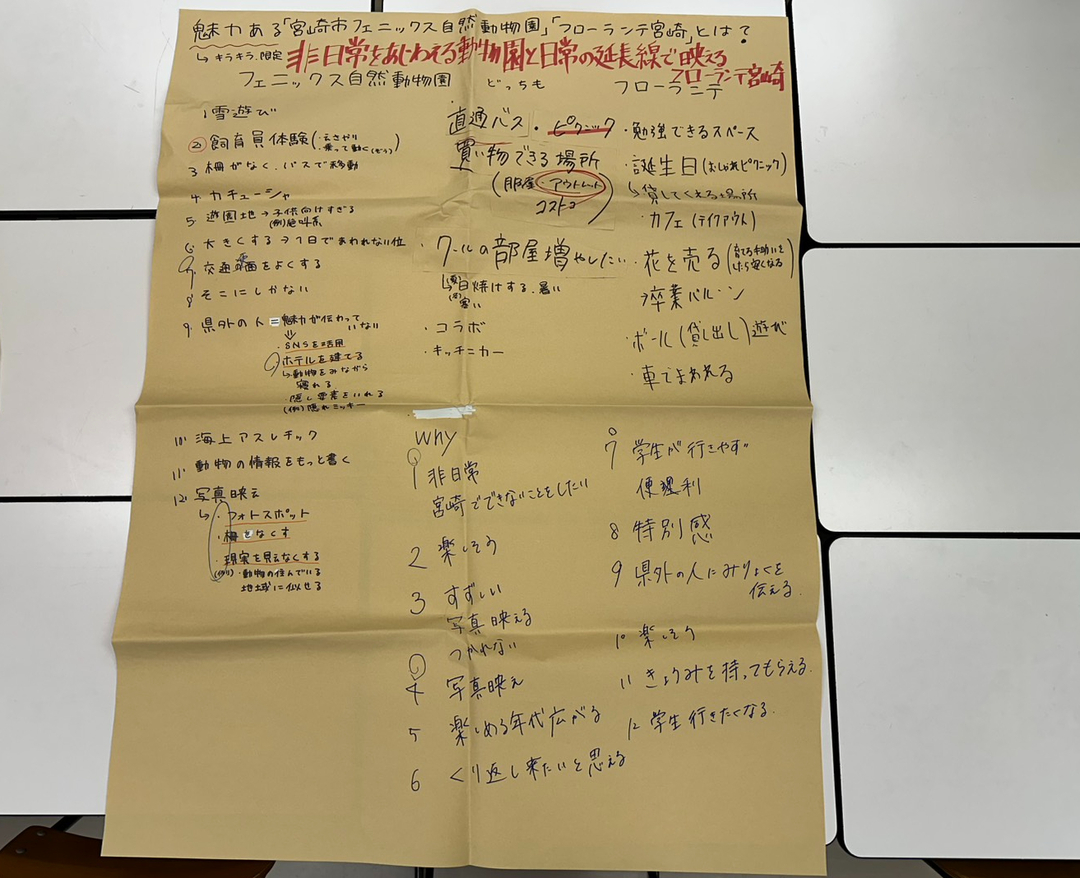 魅力ある「宮崎市フェニックス自然動物園」「フローランテ宮崎」とは？
↳ キラキラ、限定
非日常をあじわえる動物園と日常の延長線で映える
フローランテ宮崎
フェニックス自然動物園
1 雪遊び
② 飼育員体験(・えさやり
・乗って動く(ぞう))
3 柵がなく、バスで移動
4 カチューシャ
5 遊園地→子供向けすぎる
(例)絶叫系
6 大きくする→1日でまわれない位
7 交通の面をよくする
8 そこにしかない
9 県外の人=魅力が伝わって
いない
⇓
・SNSを活用
ホテルを建てる
↳動物をみながら
寝れる
・隠し要素をいれる
(例)隠れミッキー
10 海上アスレチック
11 動物の情報をもっと書く
12 写真映え
↳・フォトスポット
・柵をなくす
・現実を見えなくする
(例)・動物の住んでいる
地域に似せる
どっちも
直通バス・ピクニック
買い物できる場所
(服屋・アウトレット
コストコ)
・クールの部屋増やしたい
(夏)日焼けする、暑い
(冬)寒い
・コラボ
・キッチンカー
フローランテ
・勉強できるスペース
・誕生日(おしゃれピクニック)
↳貸してくれる場所
・カフェ(テイクアウト)
・花を売る(育てる手助いを
したら安くなる)
→卒業バルーン
・ボール(貸し出し)遊び
・車でまわれる
why
1 非日常
宮崎でできないことをしたい
2 楽しそう
3 すずしい
写真映える
つかれない
4 写真映え
5 楽しめる年代広がる
6 くり返し来たいと思える
7 学生が行きやす
便利
8 特別感
9 県外の人にみりょくを
伝える。
10 楽しそう
11 きょうみを持ってもらえる。
12 学生行きたくなる。